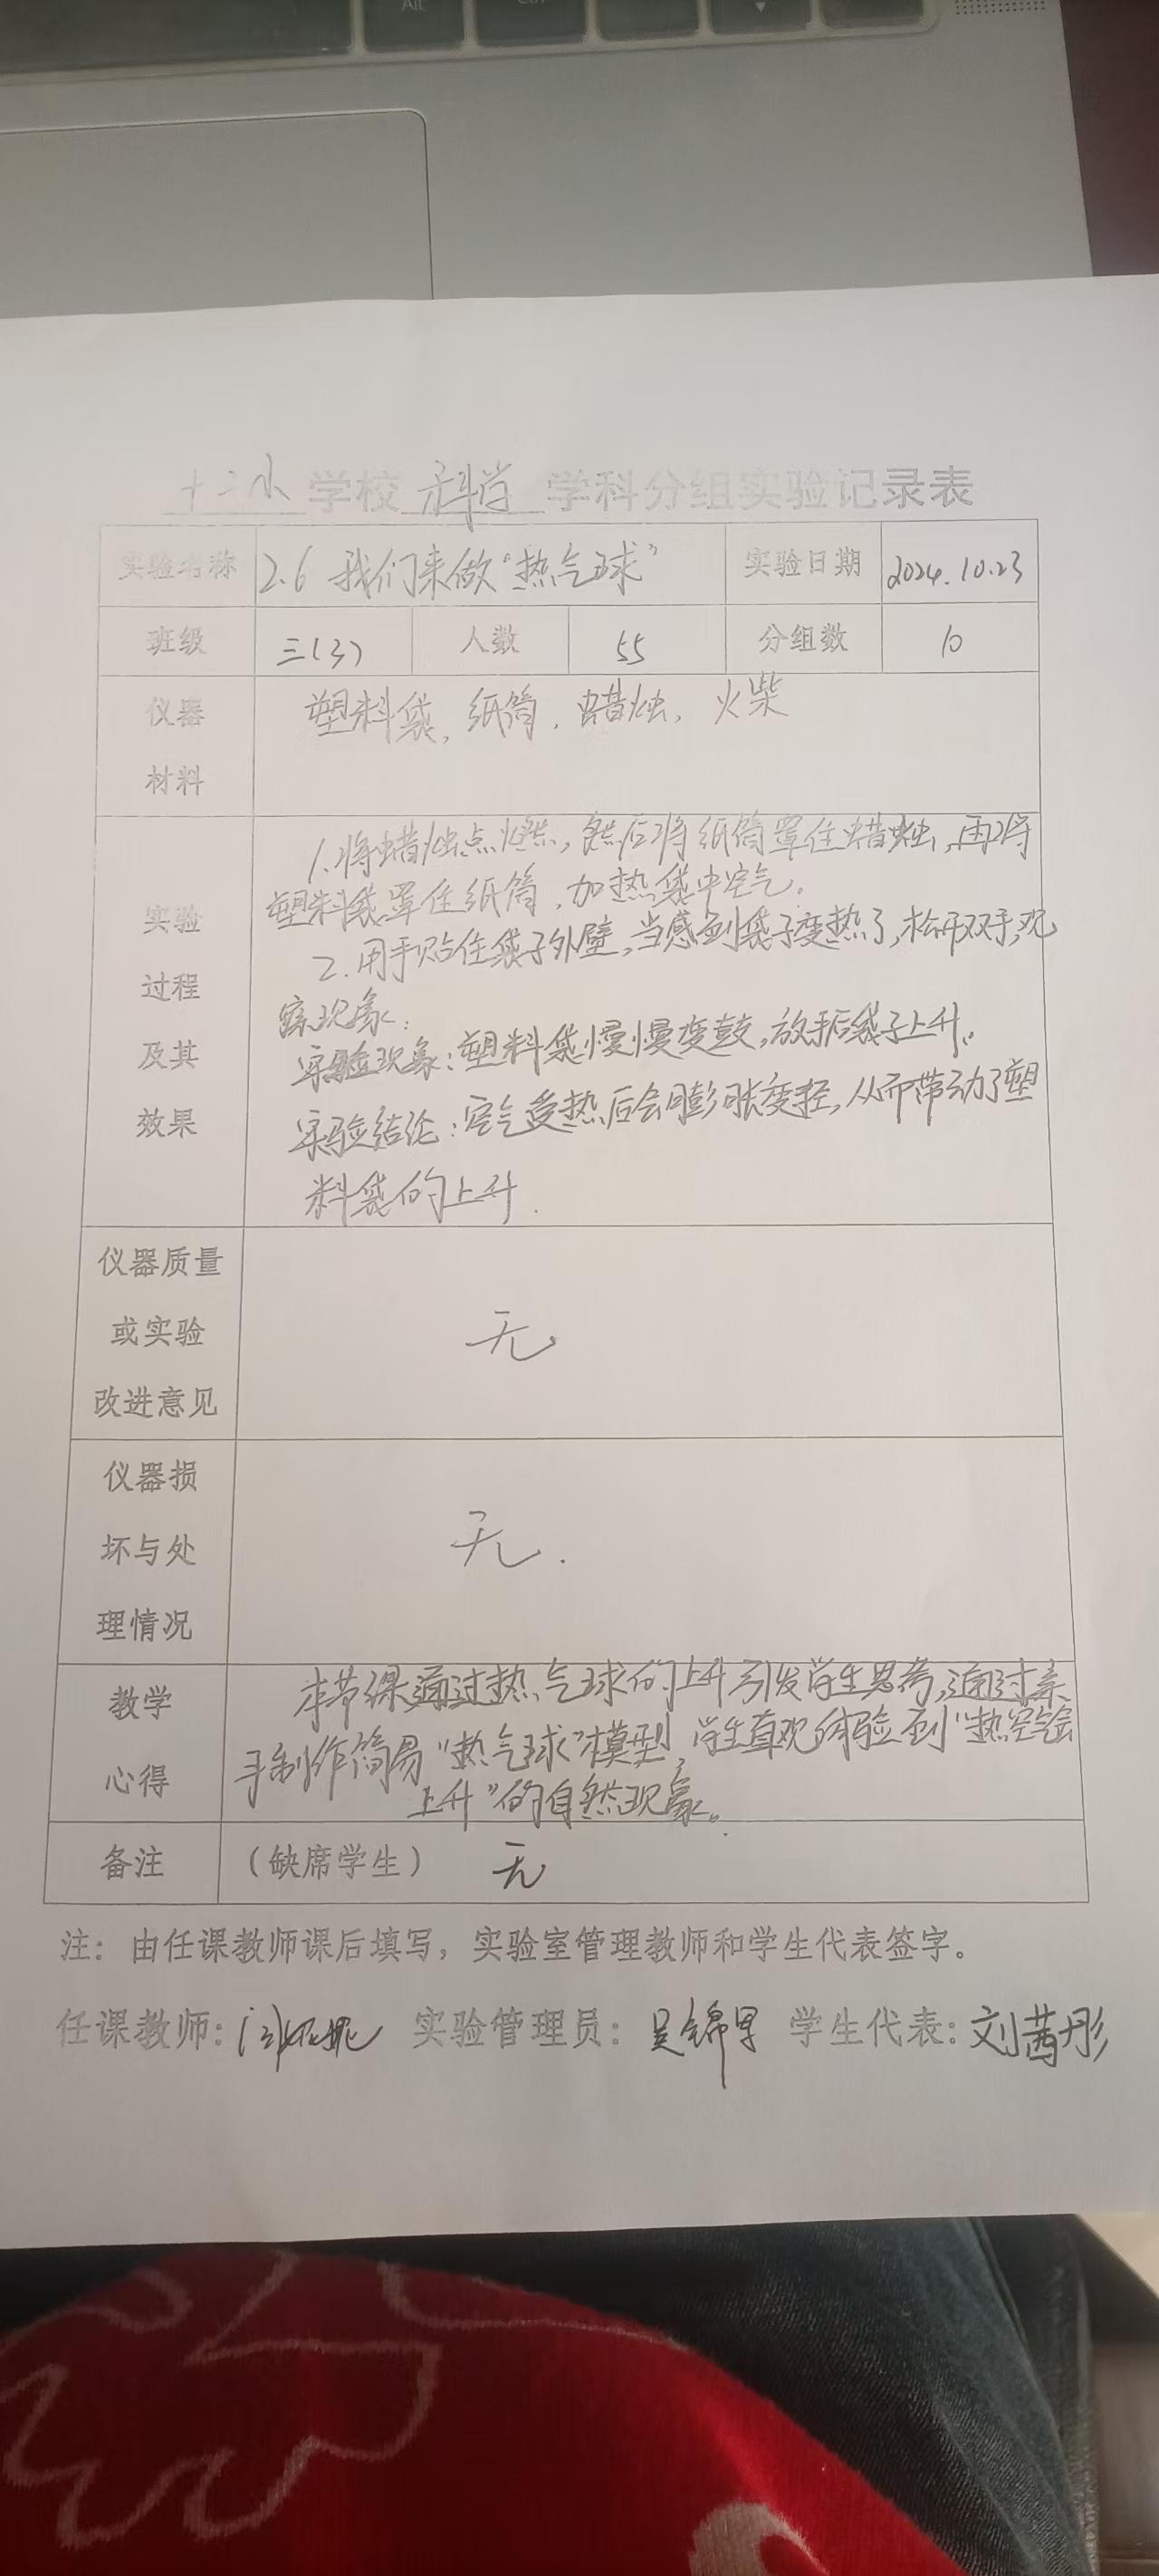 Alt Ctrl
十二小 学校 科学 学科分组实验记录表
实验名称 2.6 我们来做“热气球” 实验日期 2024.10.23
班级 三(3) 人数 55 分组数 10
仪器 塑料袋、纸筒、蜡烛、火柴
材料
1.将蜡烛点燃,然后将纸筒罩住蜡烛,再将
塑料袋罩住纸筒,加热袋中空气。
2.用手贴住袋子外壁,当感到袋子变热了,松开双手,观
察现象:
实验现象:塑料袋慢慢变鼓,放手后袋子上升。
实验结论:空气受热后会膨胀变轻,从而带动了塑
料袋的上升.
实验
过程
及其
效果
仪器质量
或实验 无
改进意见
仪器损
坏与处 无.
理情况
教学
心得
本节课通过热气球的上升引发学生思考,通过亲
手制作简易“热气球”模型,学生直观体验到“热空气会
上升”的自然现象。
备注 (缺席学生) 无
注:由任课教师课后填写,实验室管理教师和学生代表签字。
任课教师: 实验管理员:吴锦 学生代表:刘茜彤